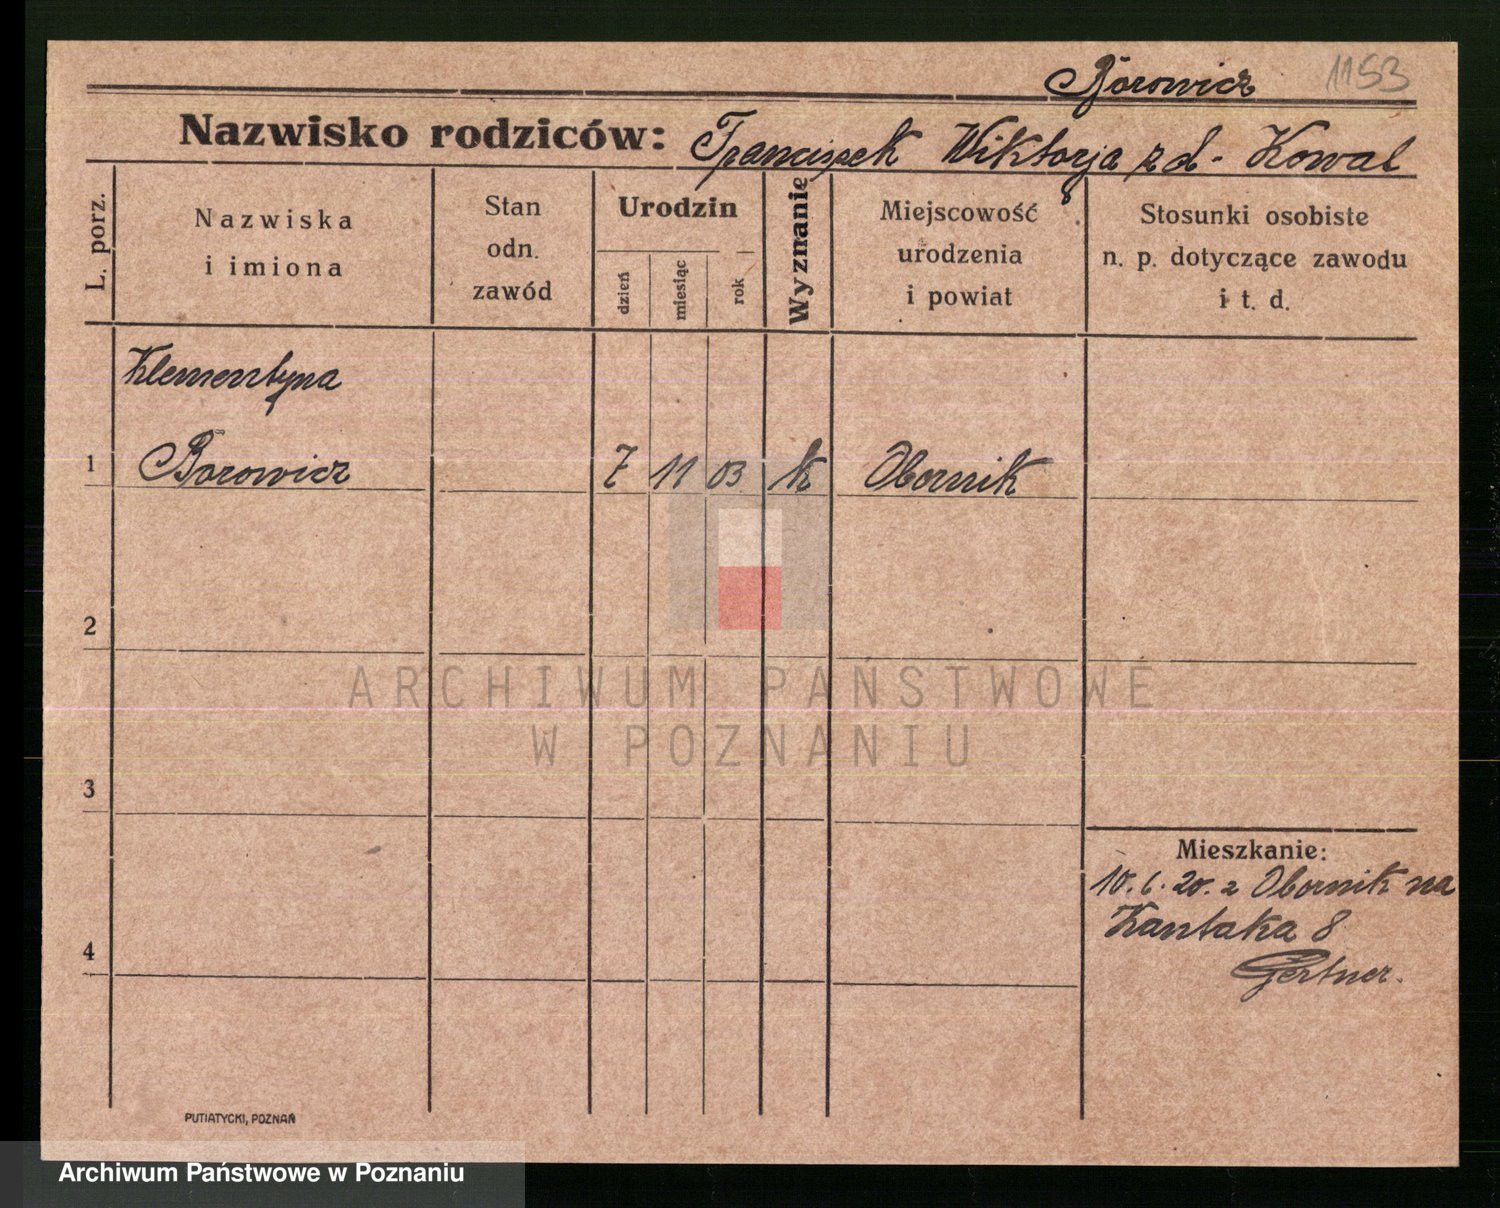 Borowicz 1153
Nazwisko rodziców: Franciszek Wiktorja z d - Kowal
L. porz.
Nazwiska
i imiona
Stan
odn.
zawód
Urodzin
dzień
miesiąc
rok
Wyznanie
Miejscowość
urodzenia
i powiat
Stosunki osobiste
n. p. dotyczące zawodu
i t. d.
Klementyna
1 Borowicz 7 11 03 k Obornik
2
ARCHIWUM PAŃSTWOWE
W POZNANIU
3
Mieszkanie:
10.6.20. z Obornik na
Kantaka 8
Gertner.
4
PUTIATYCKI, POZNAŃ
Archiwum Państwowe w Poznaniu